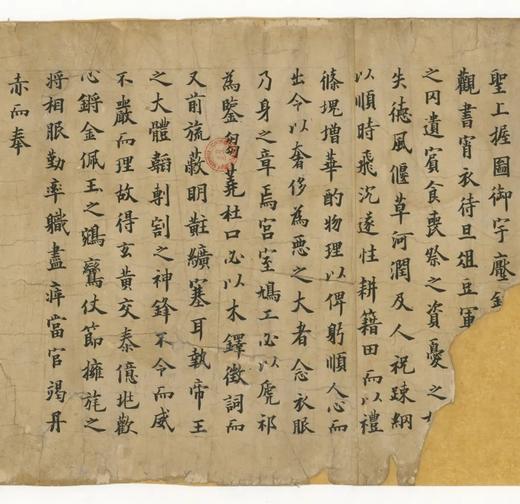 聖上握圖御宇廢
觀書宵衣待旦俎豆軍
之囚遺賓食喪祭之資憂之
失德風偃草河潤及人祝踈網
以順時飛沉遂性耕籍田而以禮
篠堄增華酌物理以俾躬順人心而
出令以奢侈為惡之大者念衣服
乃身之章焉宮室鳩工必以虒祁
為鑒芻蕘杜口必以木鐸徵詞而
又前旒蔽明黈纊塞耳執帝王
之大體韜剸割之神鋒不令而威
不嚴而理故得玄黃交泰億兆歡
心鏘金佩玉之鵷鸞仗節擁旄之
將相服勤率職盡瘁當官竭丹
赤而奉